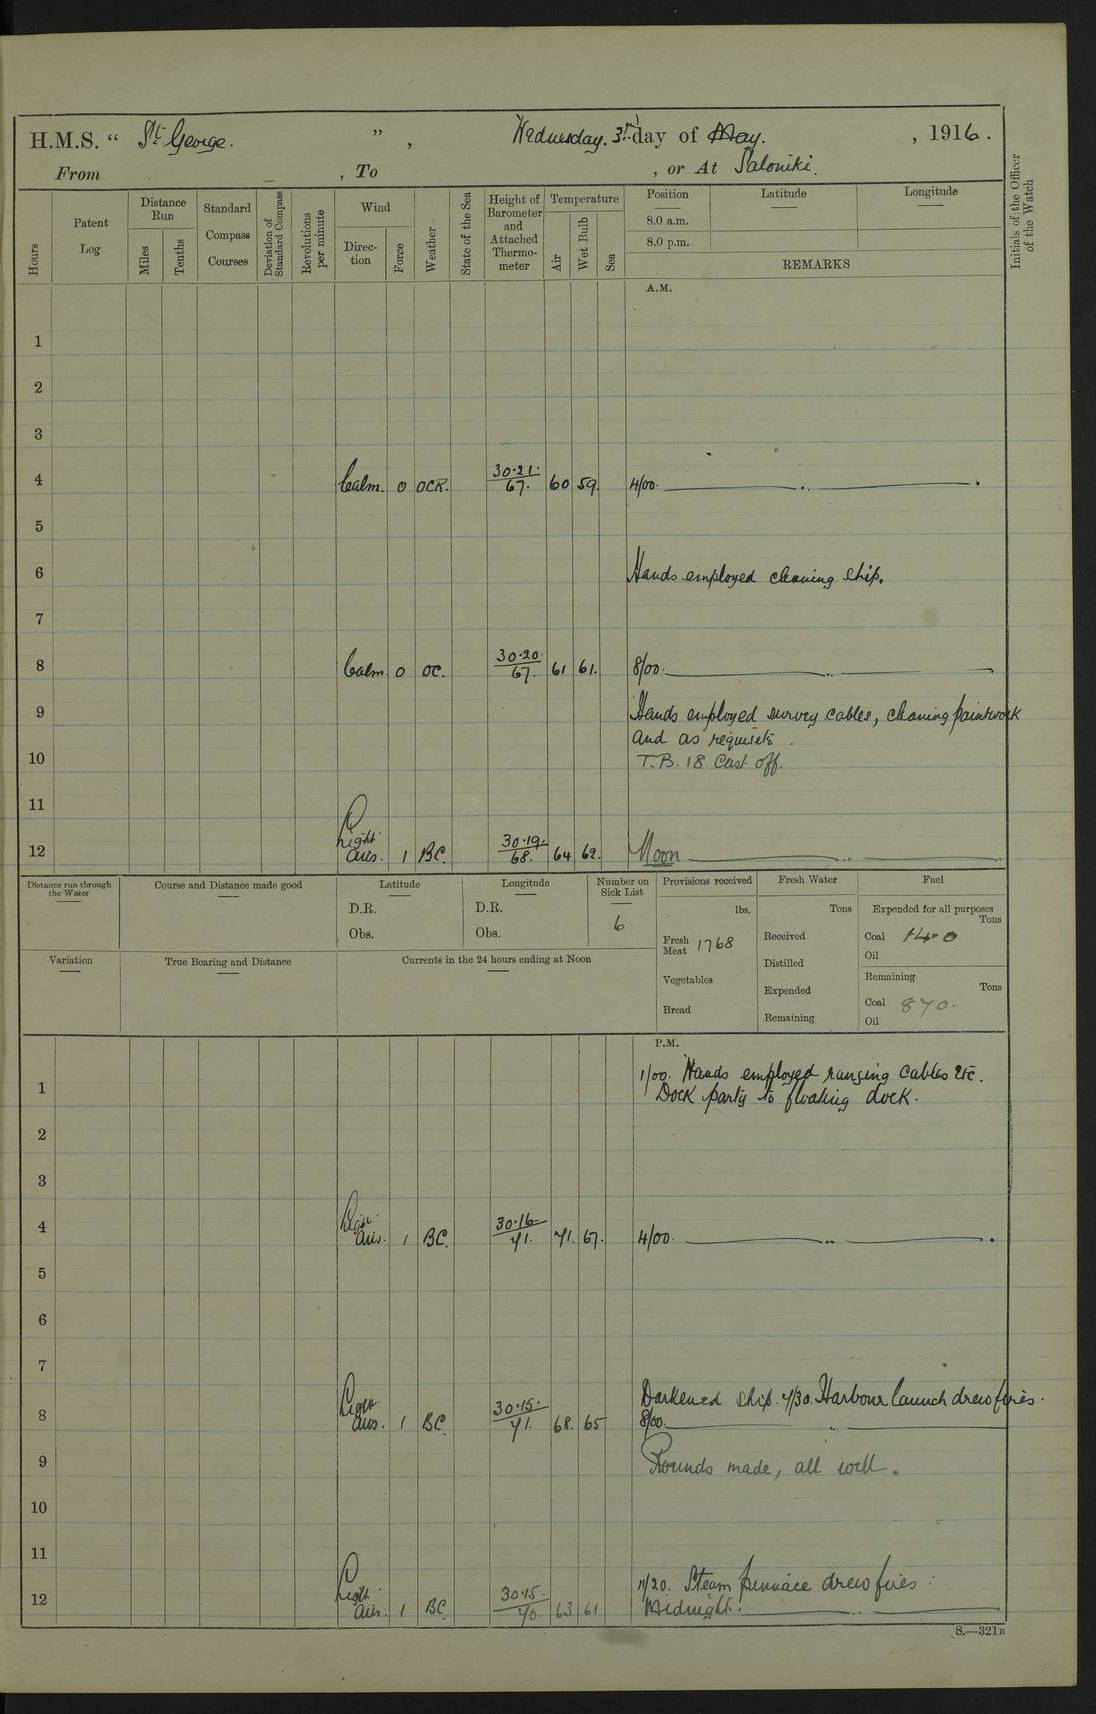 H.M.S. " St George. ", Wednesday. 3rd day of May. , 1916.
From , To , or At Saloniki.
Hours
Patent Log
Distance Run
Miles
Tenths
Standard Compass Courses
Deviation of Standard Compass
Revolutions per minute
Wind
Direction
Force
Weather
State of the Sea
Height of Barometer and Attached Thermometer
Temperature
Air
Wet Bulb
Sea
Position
Latitude
Longitude
8.0 a.m.
8.0 p.m.
REMARKS
Initials of the Officer of the Watch
A.M.
1
2
3
4 Calm. 0 OCR. 30.21. 67. 60 59. 4/00.
5
6 Hands employed cleaning ship.
7
8 Calm. 0 OC. 30.20. 67. 61 61. 8/00.
9 Hands employed survey cables, cleaning paintwork
and as requisite.
10 T.B. 18 Cast off.
11
12 Light airs. 1 BC. 30.19. 68. 64 62. Noon
Distance run through the Water
Course and Distance made good
Latitude
D.R.
Obs.
Longitude
D.R.
Obs.
Number on Sick List
6
Provisions received
lbs.
Fresh Meat 1768
Vegetables
Bread
Fresh Water
Tons
Received
Distilled
Expended
Remaining
Fuel
Expended for all purposes
Tons
Coal
Oil
Remaining
Tons
Coal 870.
Oil
Variation
True Bearing and Distance
Currents in the 24 hours ending at Noon
P.M.
1/00. Hands employed ranging cables etc.
1 Dock party to floating dock.
2
3
4 Light airs. 1 BC. 30.16 71. 71. 67. 4/00.
5
6
7
Darkened ship. 7/30. Harbour launch drew fires.
8 Light airs. 1 BC. 30.15. 71. 68. 65 8/00.
9 Rounds made, all well.
10
11
11/20. Steam pinnace drew fires.
12 Light airs. 1 BC. 30.15. 70. 63 61 Midnight.
S.—321B